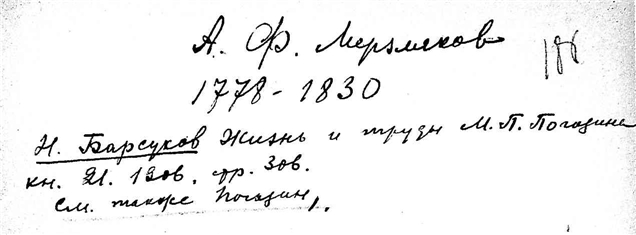 А. Ф. Мерзляков
188
1778-1830
Н. Барсуков Жизнь и труды М. П. Погодина
кн. 21. 190в. стр. 30в.
См. также Погодин,